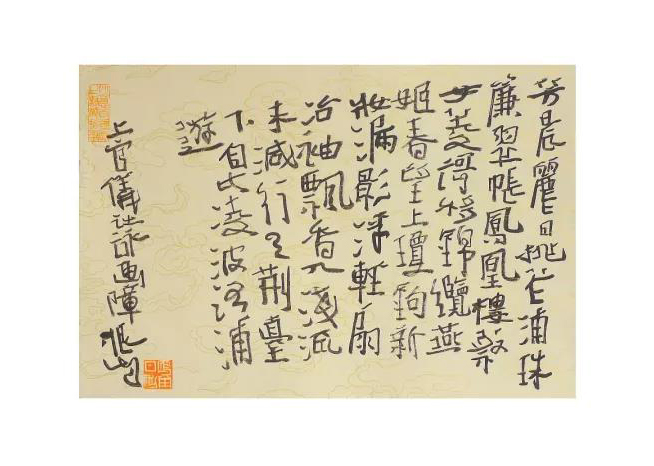 芳晨麗日桃花浦珠
簾翠帳鳳凰樓蔡
女菱謌移錦纜燕
姬春望上瓊鉤新
妝漏影浮輕扇
冶袖飄香入淺流
未減行荆臺
下自比凌波洛浦
遊
上官儀詠画障